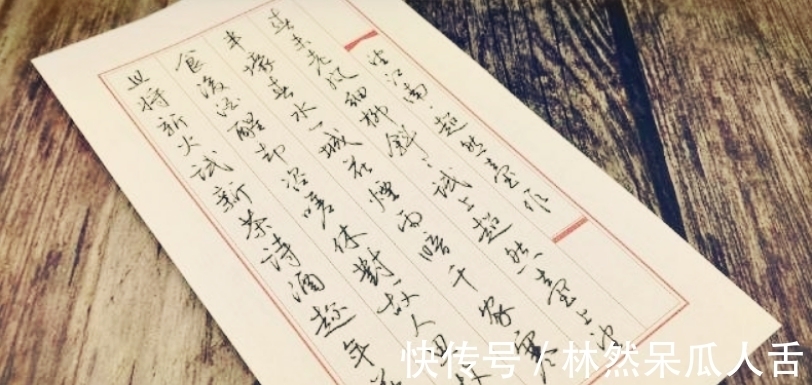 望江南·超然臺作
春未老风细柳斜々试上超然臺上
半壕春水一城花煙雨暗千家寒
食後酒醒却咨嗟休對故人思
且将新火试新茶诗酒趁年
快传号 / 林然呆瓜人舌